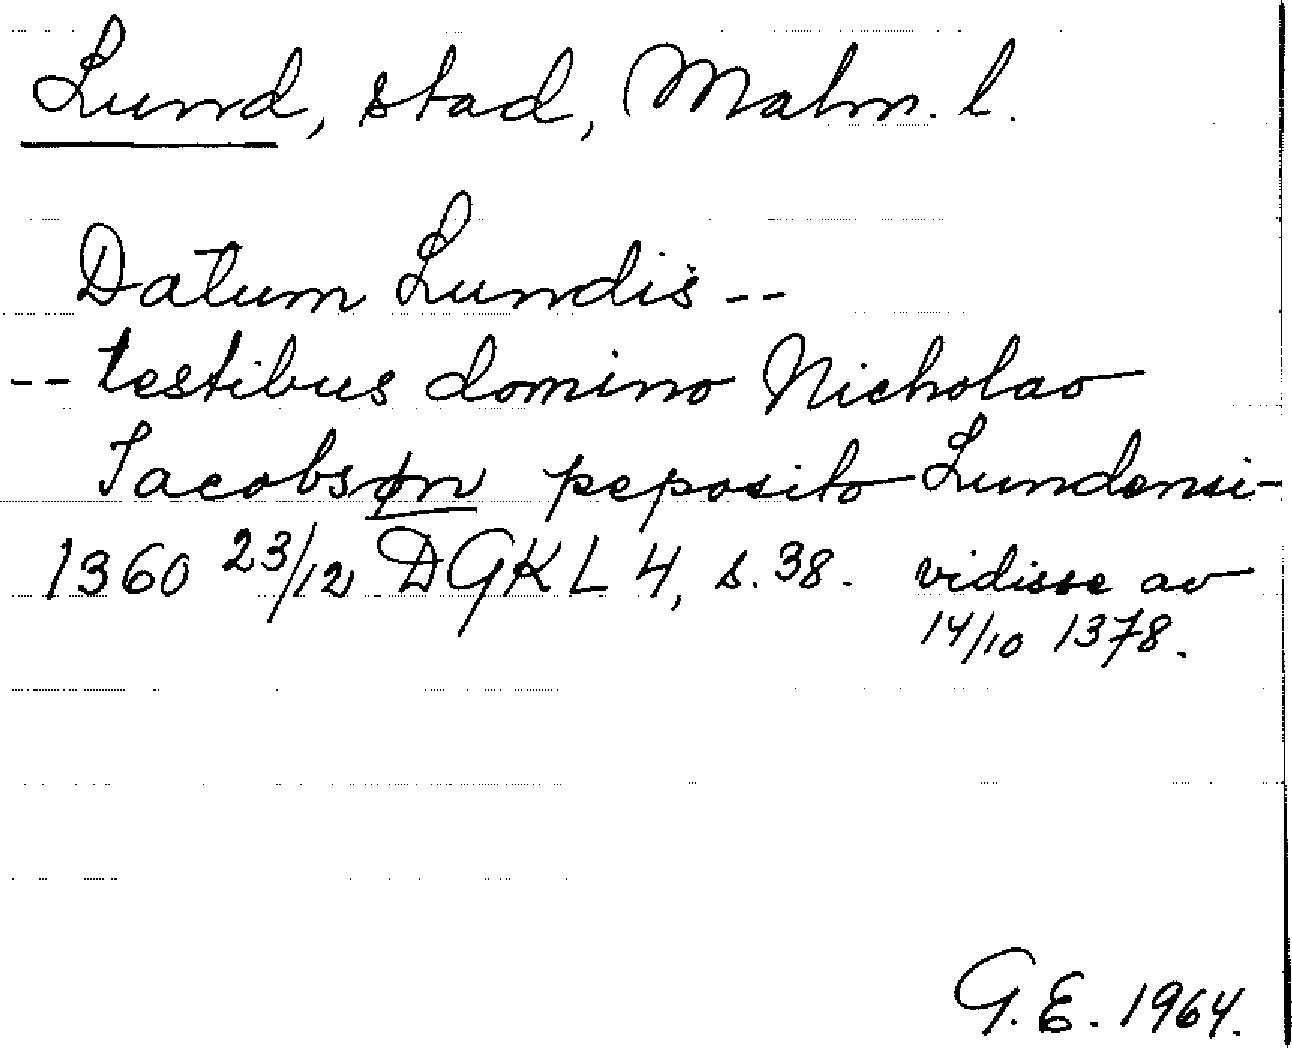 Lund, stad, Malm. l.
Datum Lundis --
-- testibus domino Nicholao
Jacobsøn peposito Lundensi -
1360 23/12 DGKL 4, s. 38. vidisse av
14/10 1378.
G.E. 1964.